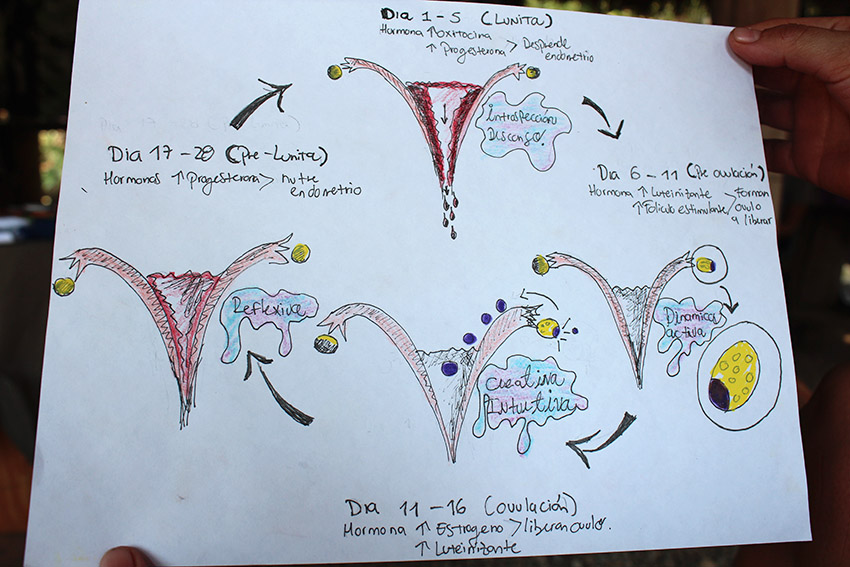 Dia 1 - 5 (Lunita)
Hormona ↑ Oxitocina
↑ Progesterona > Desprende
endometrio
Introspección
Descanso!
Dia 6 - 11 (Pre ovulación)
Hormona ↑ Luteinizante > Forman
↑ Foliculoestimulante ovulo
a liberar
Dinamica
activa
Creativa
Intuitiva
Dia 11 - 16 (ovulación)
Hormona ↑ Estrogeno > liberan ovulo.
↑ Luteinizante
Dia 17 - 28 (Pre-Lunita)
Hormonas ↑ Progesterona > nutre
endometrio
Reflexiva